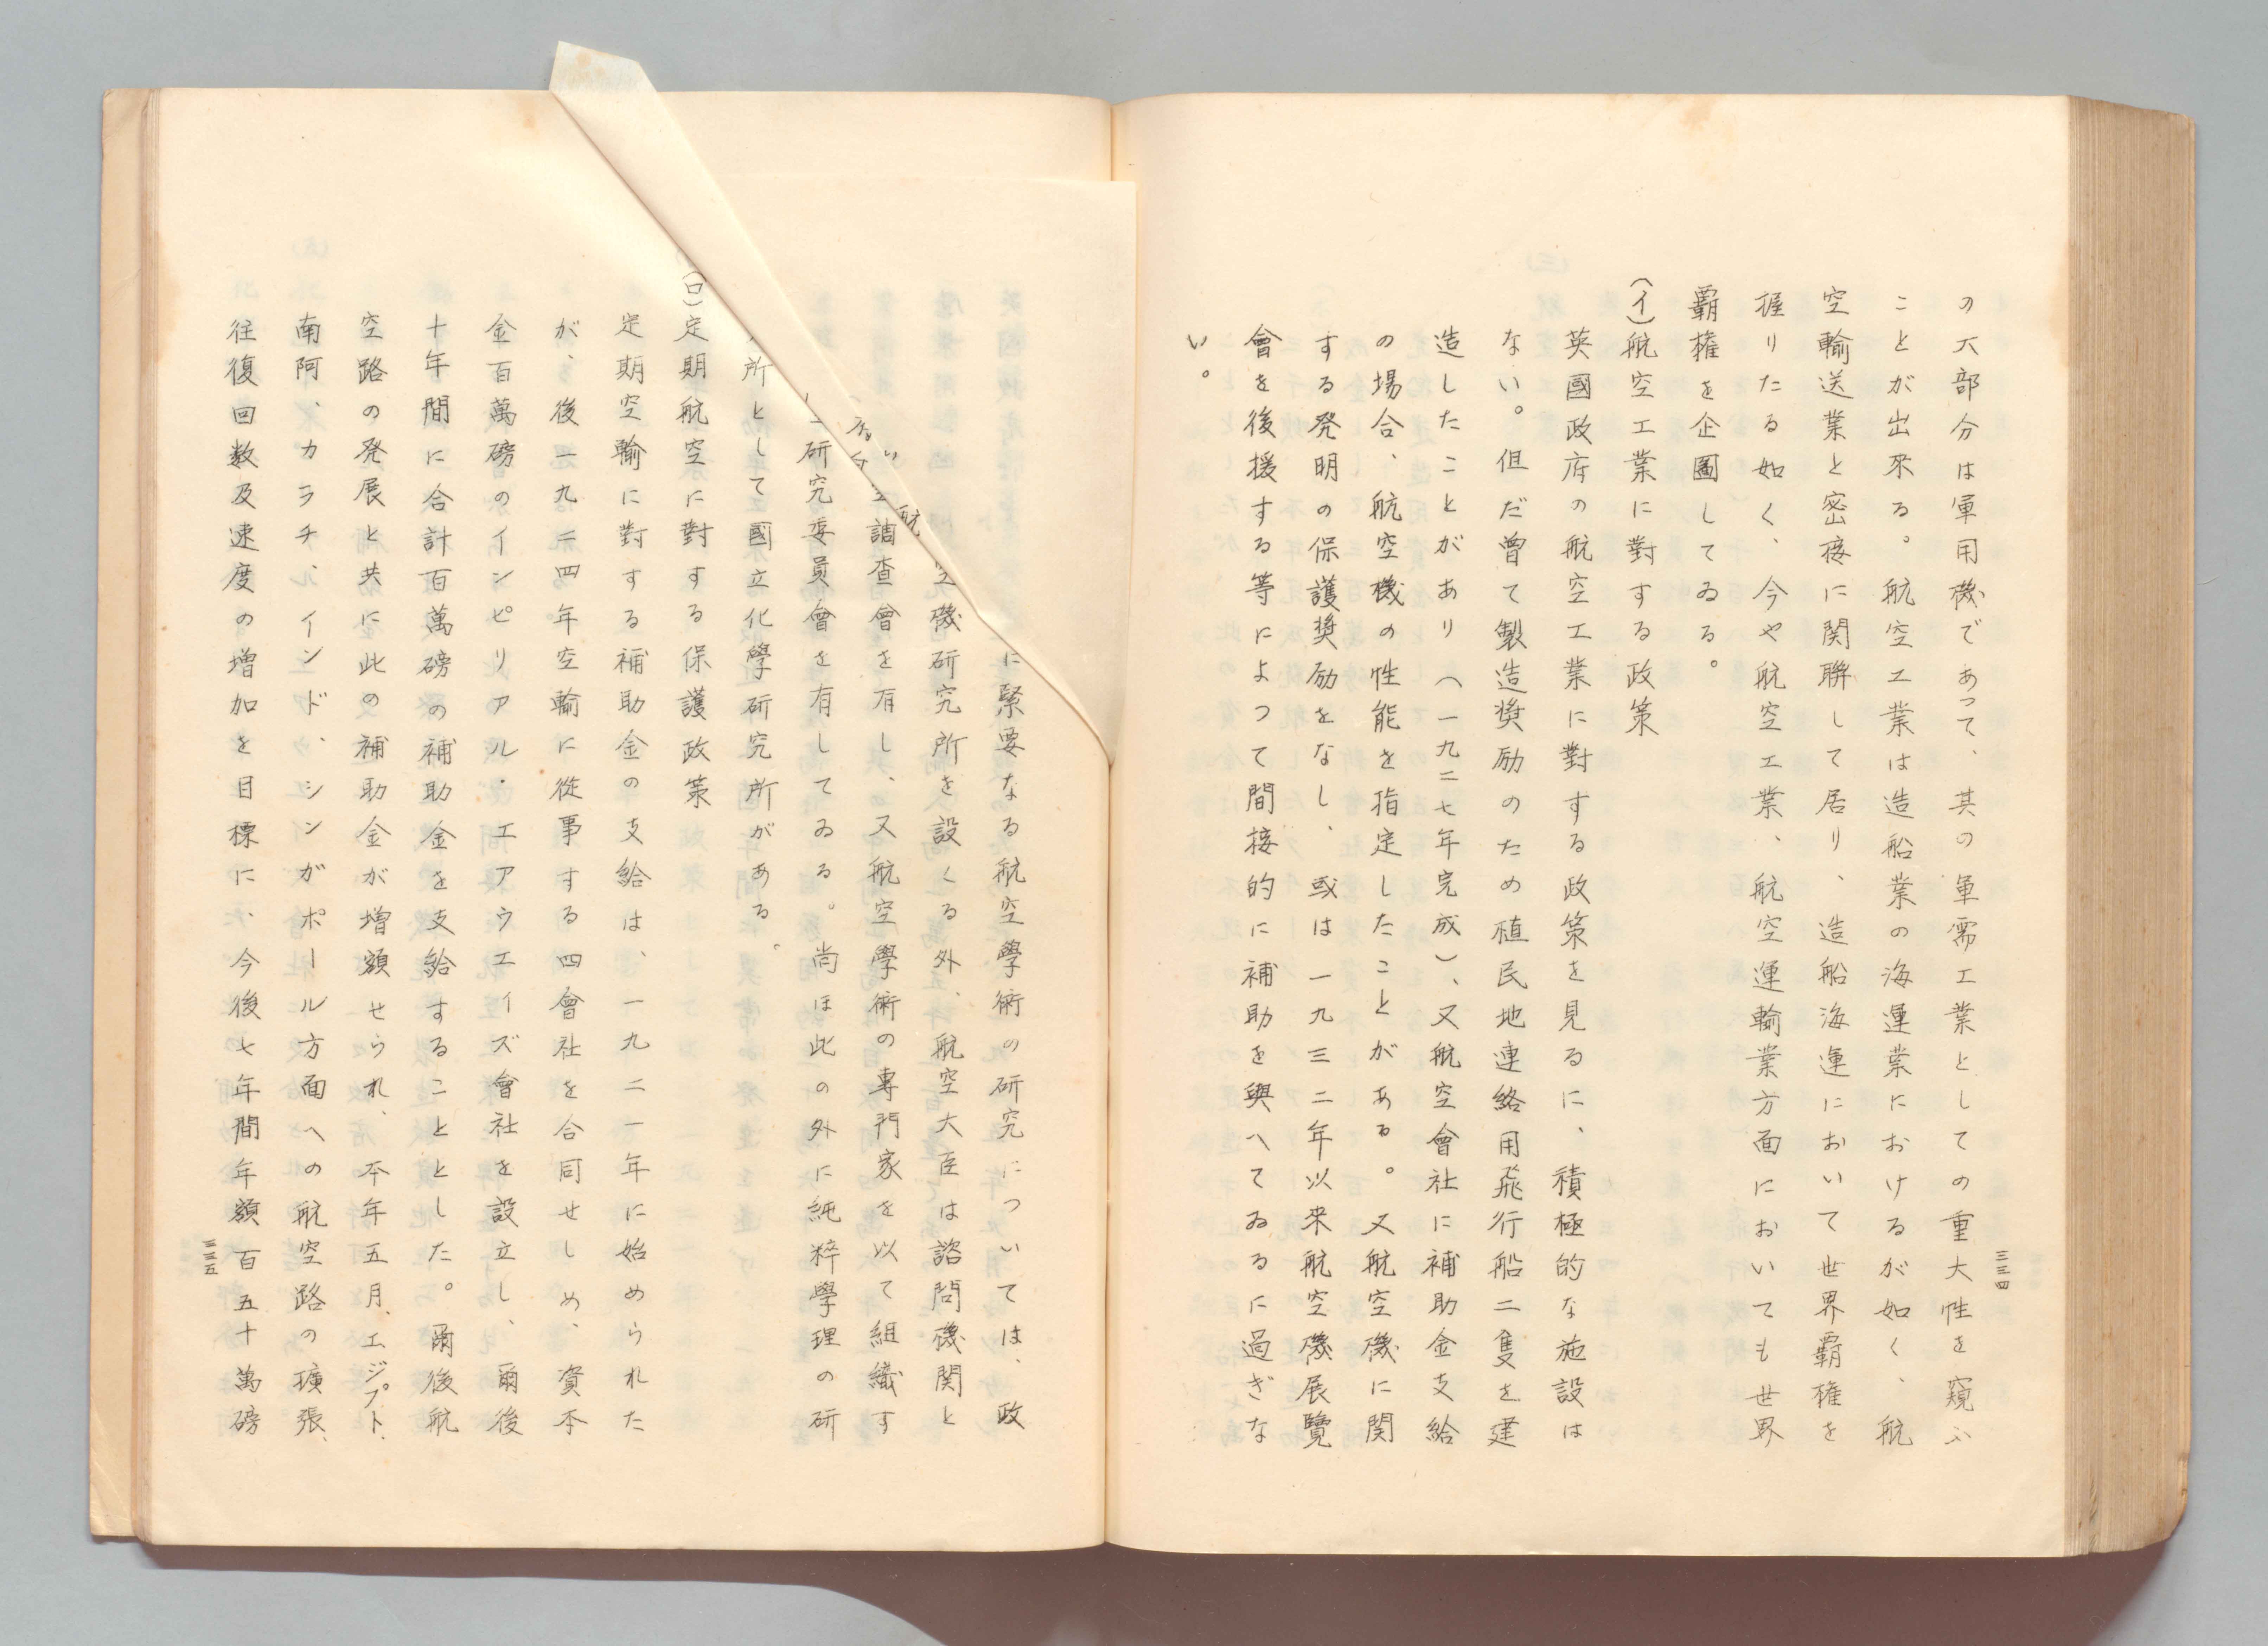 の大部分は軍用機であつて、其の軍需工業としての重大性を窺ふ
ことが出來る。航空工業は造船業の海運業におけるが如く、航
空輸送業と密接に関聯して居り、造船海運において世界覇権を
握りたる如く、今や航空工業、航空運輸業方面においても世界
覇権を企圖してゐる。
(イ)航空工業に對する政策
英國政府の航空工業に對する政策を見るに、積極的な施設は
ない。但だ曽て製造奬励のため植民地連絡用飛行船二隻を建
造したことがあり(一九二七年完成)、又航空會社に補助金支給
の場合、航空機の性能を指定したことがある。又航空機に関
する発明の保護奬励をなし、或は一九三二年以来航空機展覽
會を後援する等によつて間接的に補助を與へてゐるに過ぎな
い。
三三四
に緊要なる航空學術の研究については、政
空機研究所を設くる外、航空大臣は諮問機関と
調査會を有し、又航空學術の專門家を以て組織す
研究委員會を有してゐる。尚ほ此の外に純粹學理の研
所として國立化學研究所がある。
(ロ)定期航空に對する保護政策
定期空輸に對する補助金の支給は、一九二一年に始められた
が、後一九二四年空輸に從事する四會社を合同せしめ、資本
金百萬磅のインピリアル・エアウエイズ會社を設立し、爾後
十年間に合計百萬磅の補助金を支給することとした。爾後航
空路の発展と共に此の補助金が増額せられ、本年五月、エジプト、
南阿、カラチ、インド、シンガポール方面への航空路の擴張、
往復回数及速度の増加を目標に、今後七年間年額百五十萬磅
三三五